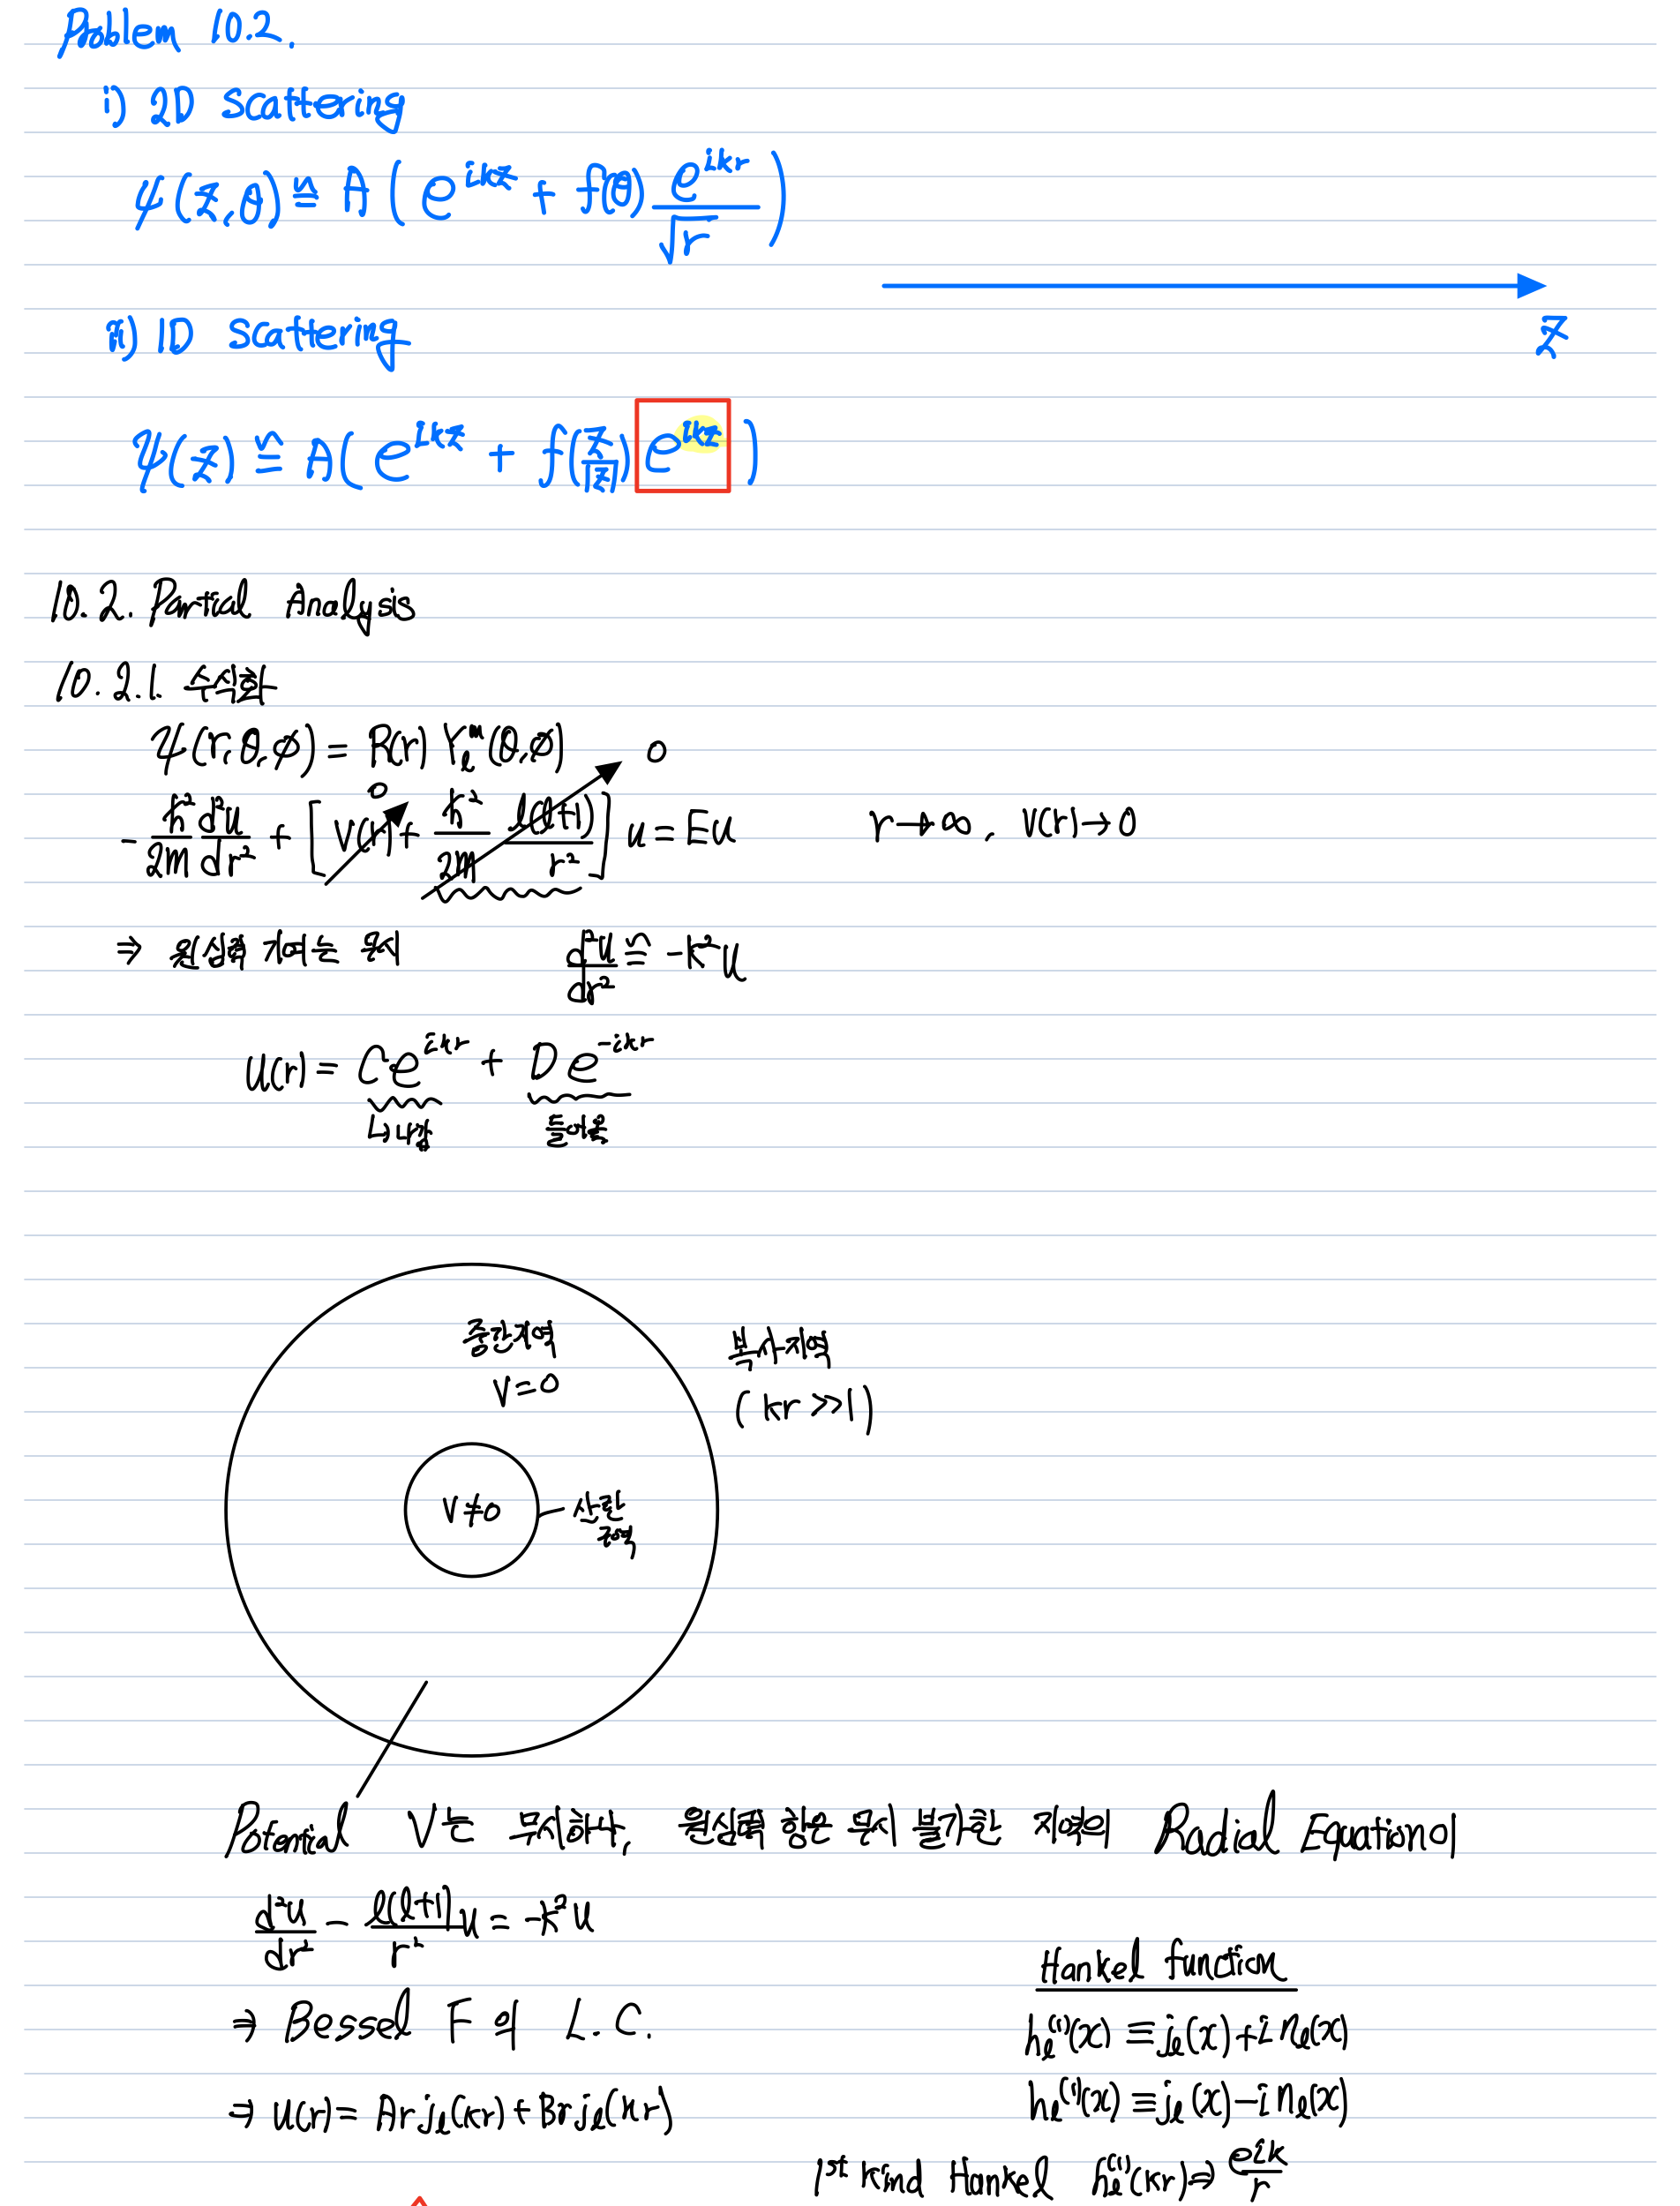 Problem 10.2.
i) 2D Scattering
ψ(z,θ) ≅ A( e^{ikz} + f(θ) e^{ikr}/√r )
z
ii) 1D Scattering
ψ(z) ≅ A( e^{ikz} + f(z/|z|) e^{ikz} )
10.2. Partial Analysis
10.2.1. 수식화
ψ(r,θ,φ) = R(r) Y_l^m(θ,φ) 0
0
-ħ²/2m d²u/dr² + [ V(r) + ħ²/2m l(l+1)/r² ] u = Eu r→∞, V(r)→0
⇒ 원심력 기여는 무시 d²u/dr² ≅ -k²u
u(r) = Ce^{ikr} + De^{-ikr}
↳나감 들어옴
중간지역 복사지역
V=0 (kr≫1)
V≠0 산란
Potential V는 무시하나, 원심력 항은 무시 불가한 지역의 Radial Equation이
d²u/dr² - l(l+1)/r² u = -k²u
Hankel function
⇒ Bessel F 의 L.C.
h_l^{(1)}(x) ≡ j_l(x) + i n_l(x)
⇒ u(r) = Ar j_l(kr) + Br j_l(kr)
h_l^{(1)}(x) ≡ j_l(x) - i n_l(x)
1st kind Hankel h_l^{(1)}(kr) ⇒ e^{ik}/r